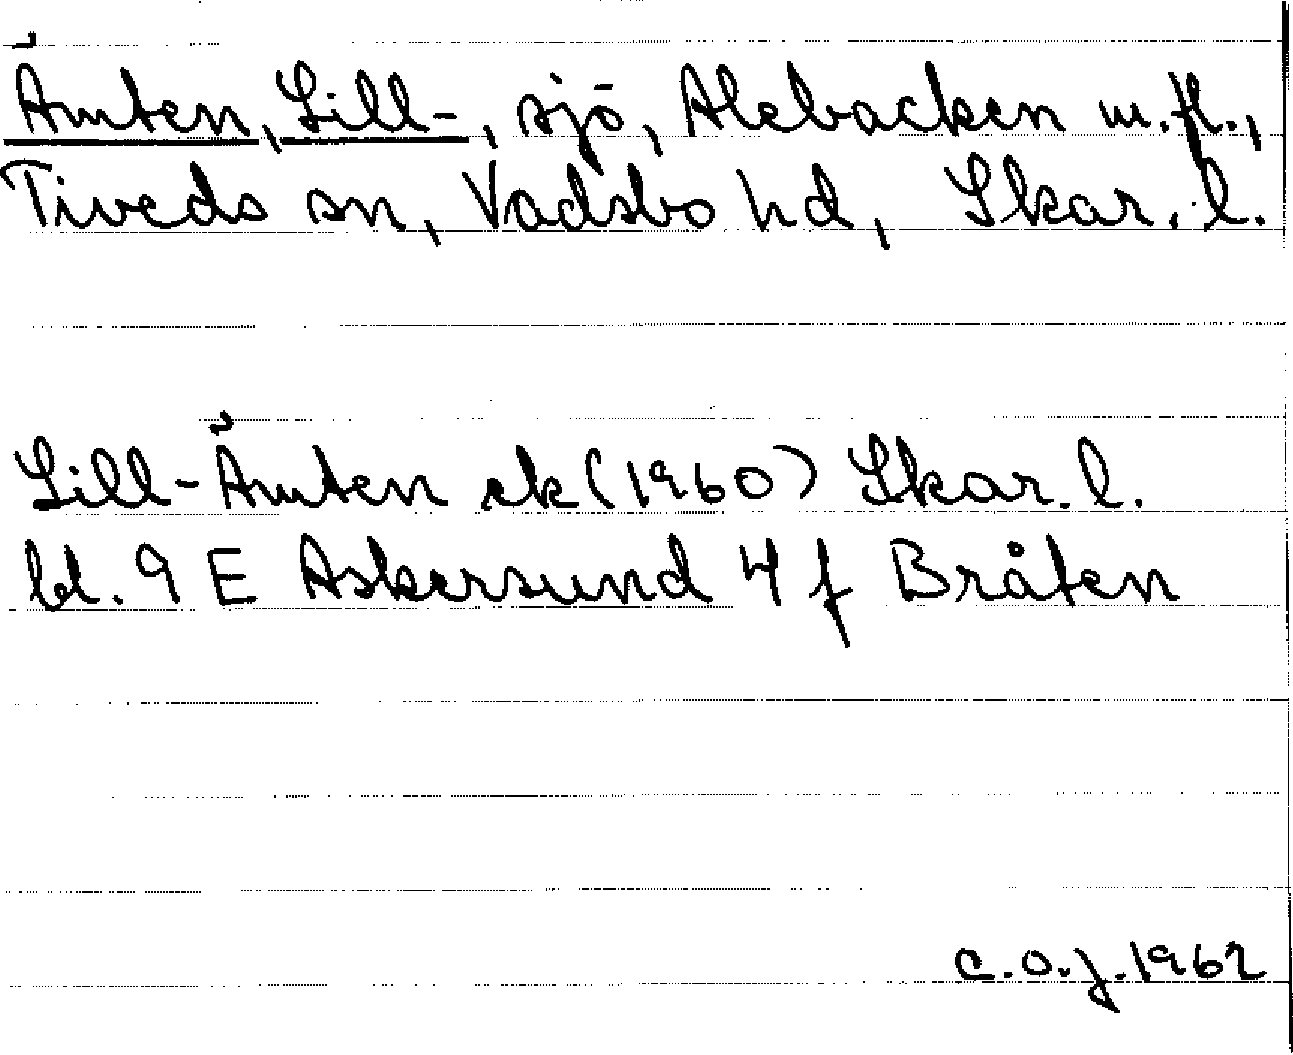 Ämten, Lill-, sjö, Alebacken m.fl.,
Tiveds sn, Vadsbo hd, Skar. l.
Lill-Ämten ek (1960) Skar. l.
bl. 9 E Askersund 4 f Bråten
C.O.J. 1962